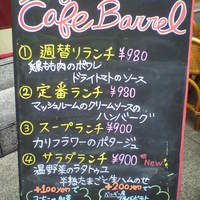 Cafe Barrel
① 週替リランチ ¥980
鶏もも肉のポワレ
ドライトマトのソース
② 定番ランチ ¥980
マッシュルームのクリームソースの
ハンバーグ
③ スープランチ ¥900
カリフラワーのポタージュ
④ サラダランチ ¥900
New
温野菜のラタトゥユ
半熟たまごと生ハムのせ
+100円で
+200円で